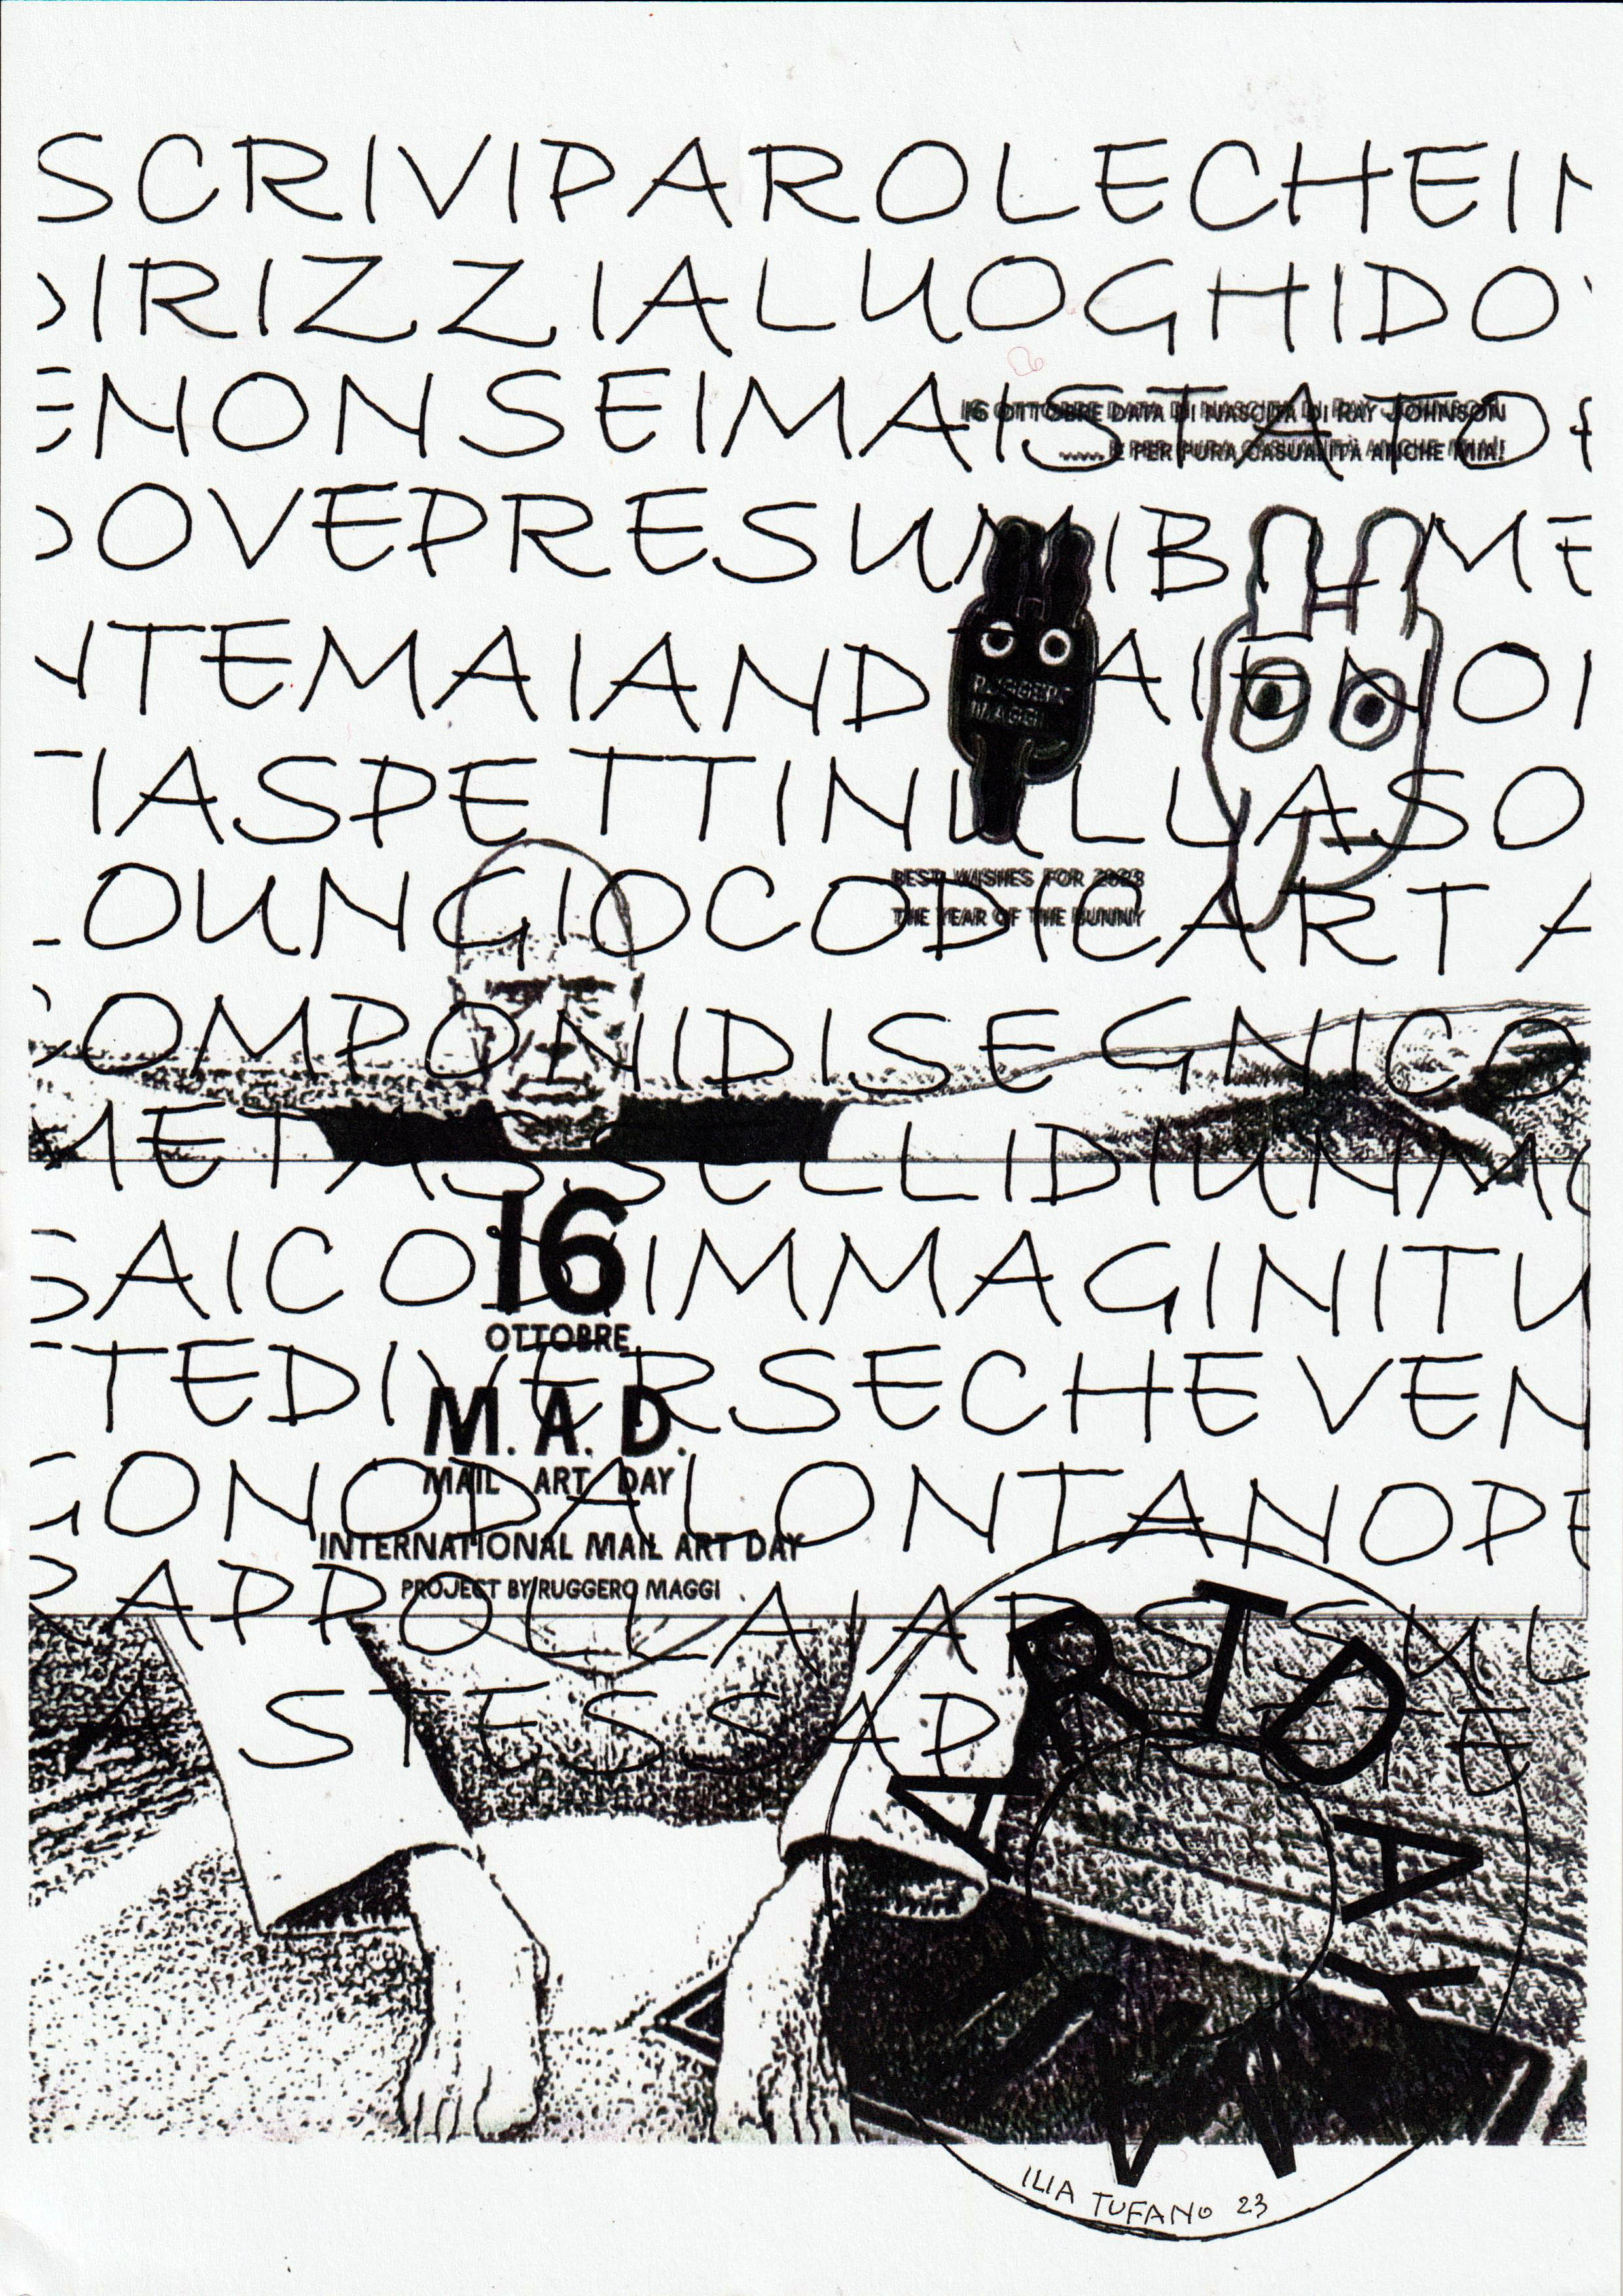 SCRIVIPAROLECHEIN
DIRIZZIALUOGHIDOV
ENONSEIMAISTATOE
16 OTTOBRE DATA DI NASCITA DI RAY JOHNSON
...... E PER PURA CASUALITÀ ANCHE MIA!
DOVEPRESUMIBILME
NTEMAIANDRAIENON
RUGGERO
MAGGI
TIASPETTINULLASO
BEST WISHES FOR 2023
THE YEAR OF THE BUNNY
LOUNGIOCODICARTA
COMPONIDISEGNICO
METASSELLIDIUNMO
16
SAICODIIMMAGINITU
OTTOBRE
TTEDIVERSECHEVEN
M. A. D.
MAIL ART DAY
GONODALONTANOPE
INTERNATIONAL MAIL ART DAY
PROJECT BY RUGGERO MAGGI
RAPPOLLAIARSISUL
STESSAPARETE
ART DAY
ILIA TUFANO 23